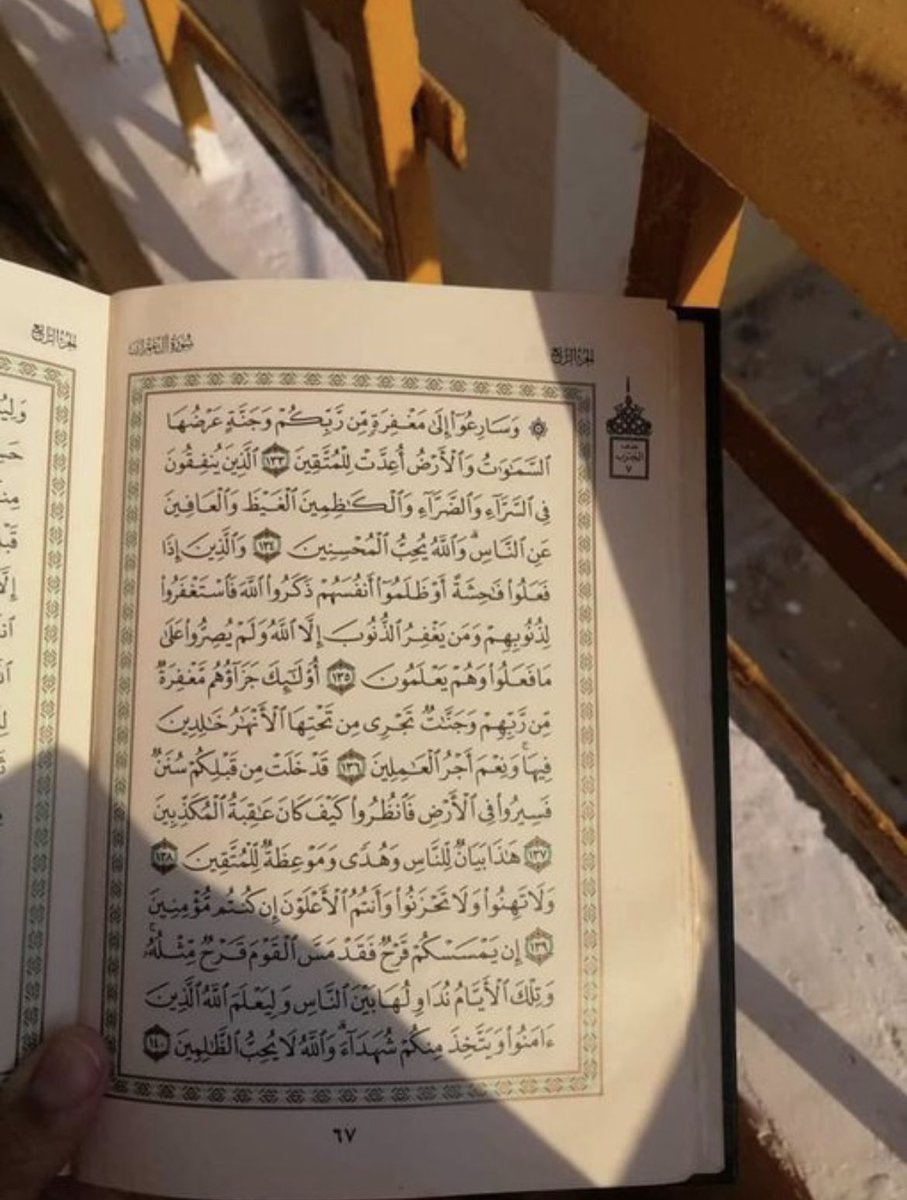 الجزء الرابع
سورة آل عمران
الجزء الرابع
۞ وَسَارِعُوٓا۟ إِلَىٰ مَغْفِرَةٍ مِّن رَّبِّكُمْ وَجَنَّةٍ عَرْضُهَا
ٱلسَّمَٰوَٰتُ وَٱلْأَرْضُ أُعِدَّتْ لِلْمُتَّقِينَ ١٣٣ ٱلَّذِينَ يُنفِقُونَ
فِى ٱلسَّرَّآءِ وَٱلضَّرَّآءِ وَٱلْكَٰظِمِينَ ٱلْغَيْظَ وَٱلْعَافِينَ
عَنِ ٱلنَّاسِ ۗ وَٱللَّهُ يُحِبُّ ٱلْمُحْسِنِينَ ١٣٤ وَٱلَّذِينَ إِذَا
فَعَلُوا۟ فَٰحِشَةً أَوْ ظَلَمُوٓا۟ أَنفُسَهُمْ ذَكَرُوا۟ ٱللَّهَ فَٱسْتَغْفَرُوا۟
لِذُنُوبِهِمْ وَمَن يَغْفِرُ ٱلذُّنُوبَ إِلَّا ٱللَّهُ وَلَمْ يُصِرُّوا۟ عَلَىٰ
مَا فَعَلُوا۟ وَهُمْ يَعْلَمُونَ ١٣٥ أُو۟لَٰٓئِكَ جَزَآؤُهُم مَّغْفِرَةٌ
مِّن رَّبِّهِمْ وَجَنَّٰتٌ تَجْرِى مِن تَحْتِهَا ٱلْأَنْهَٰرُ خَٰلِدِينَ
فِيهَا ۚ وَنِعْمَ أَجْرُ ٱلْعَٰمِلِينَ ١٣٦ قَدْ خَلَتْ مِن قَبْلِكُمْ سُنَنٌ
فَسِيرُوا۟ فِى ٱلْأَرْضِ فَٱنظُرُوا۟ كَيْفَ كَانَ عَٰقِبَةُ ٱلْمُكَذِّبِينَ
١٣٧ هَٰذَا بَيَانٌ لِّلنَّاسِ وَهُدًى وَمَوْعِظَةٌ لِّلْمُتَّقِينَ ١٣٨
وَلَا تَهِنُوا۟ وَلَا تَحْزَنُوا۟ وَأَنتُمُ ٱلْأَعْلَوْنَ إِن كُنتُم مُّؤْمِنِينَ
١٣٩ إِن يَمْسَسْكُمْ قَرْحٌ فَقَدْ مَسَّ ٱلْقَوْمَ قَرْحٌ مِّثْلُهُۥ ۚ
وَتِلْكَ ٱلْأَيَّامُ نُدَاوِلُهَا بَيْنَ ٱلنَّاسِ وَلِيَعْلَمَ ٱللَّهُ ٱلَّذِينَ
ءَامَنُوا۟ وَيَتَّخِذَ مِنكُمْ شُهَدَآءَ ۗ وَٱللَّهُ لَا يُحِبُّ ٱلظَّٰلِمِينَ ١٤٠
نصف
الحزب
٧
٦٧